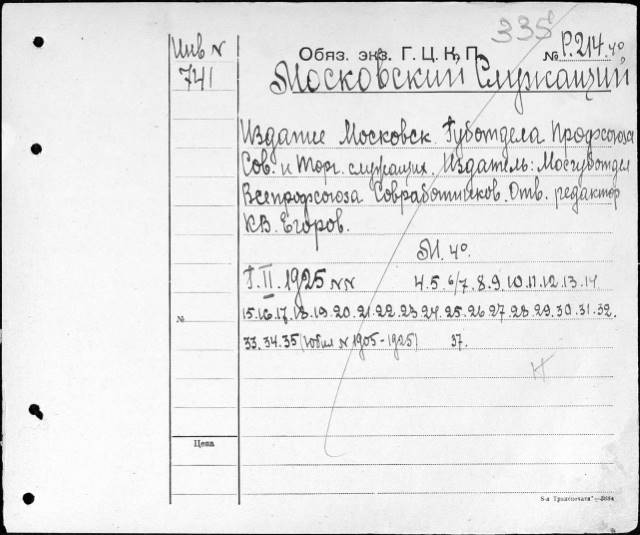 335
Инв N
741
Обяз. экз. Г. Ц. К. П.
№ Р.214.40
Московский Служащий
Издание Московск. Губотдела Профсоюза
Сов. и Торг. служащих. Издатель: Мосгуботдел
Всепрофсоюза Совработников. Отв. редактор
К.В. Егоров.
М. 40.
Г. II. 1925 NN 4.5.6/7.8.9.10.11.12.13.14
№ 15.16.17.18.19.20.21.22.23.24.25.26.27.28.29.30.31.32.
33.34.35 (Юбил N 1905-1925) 37.
Н
Цена